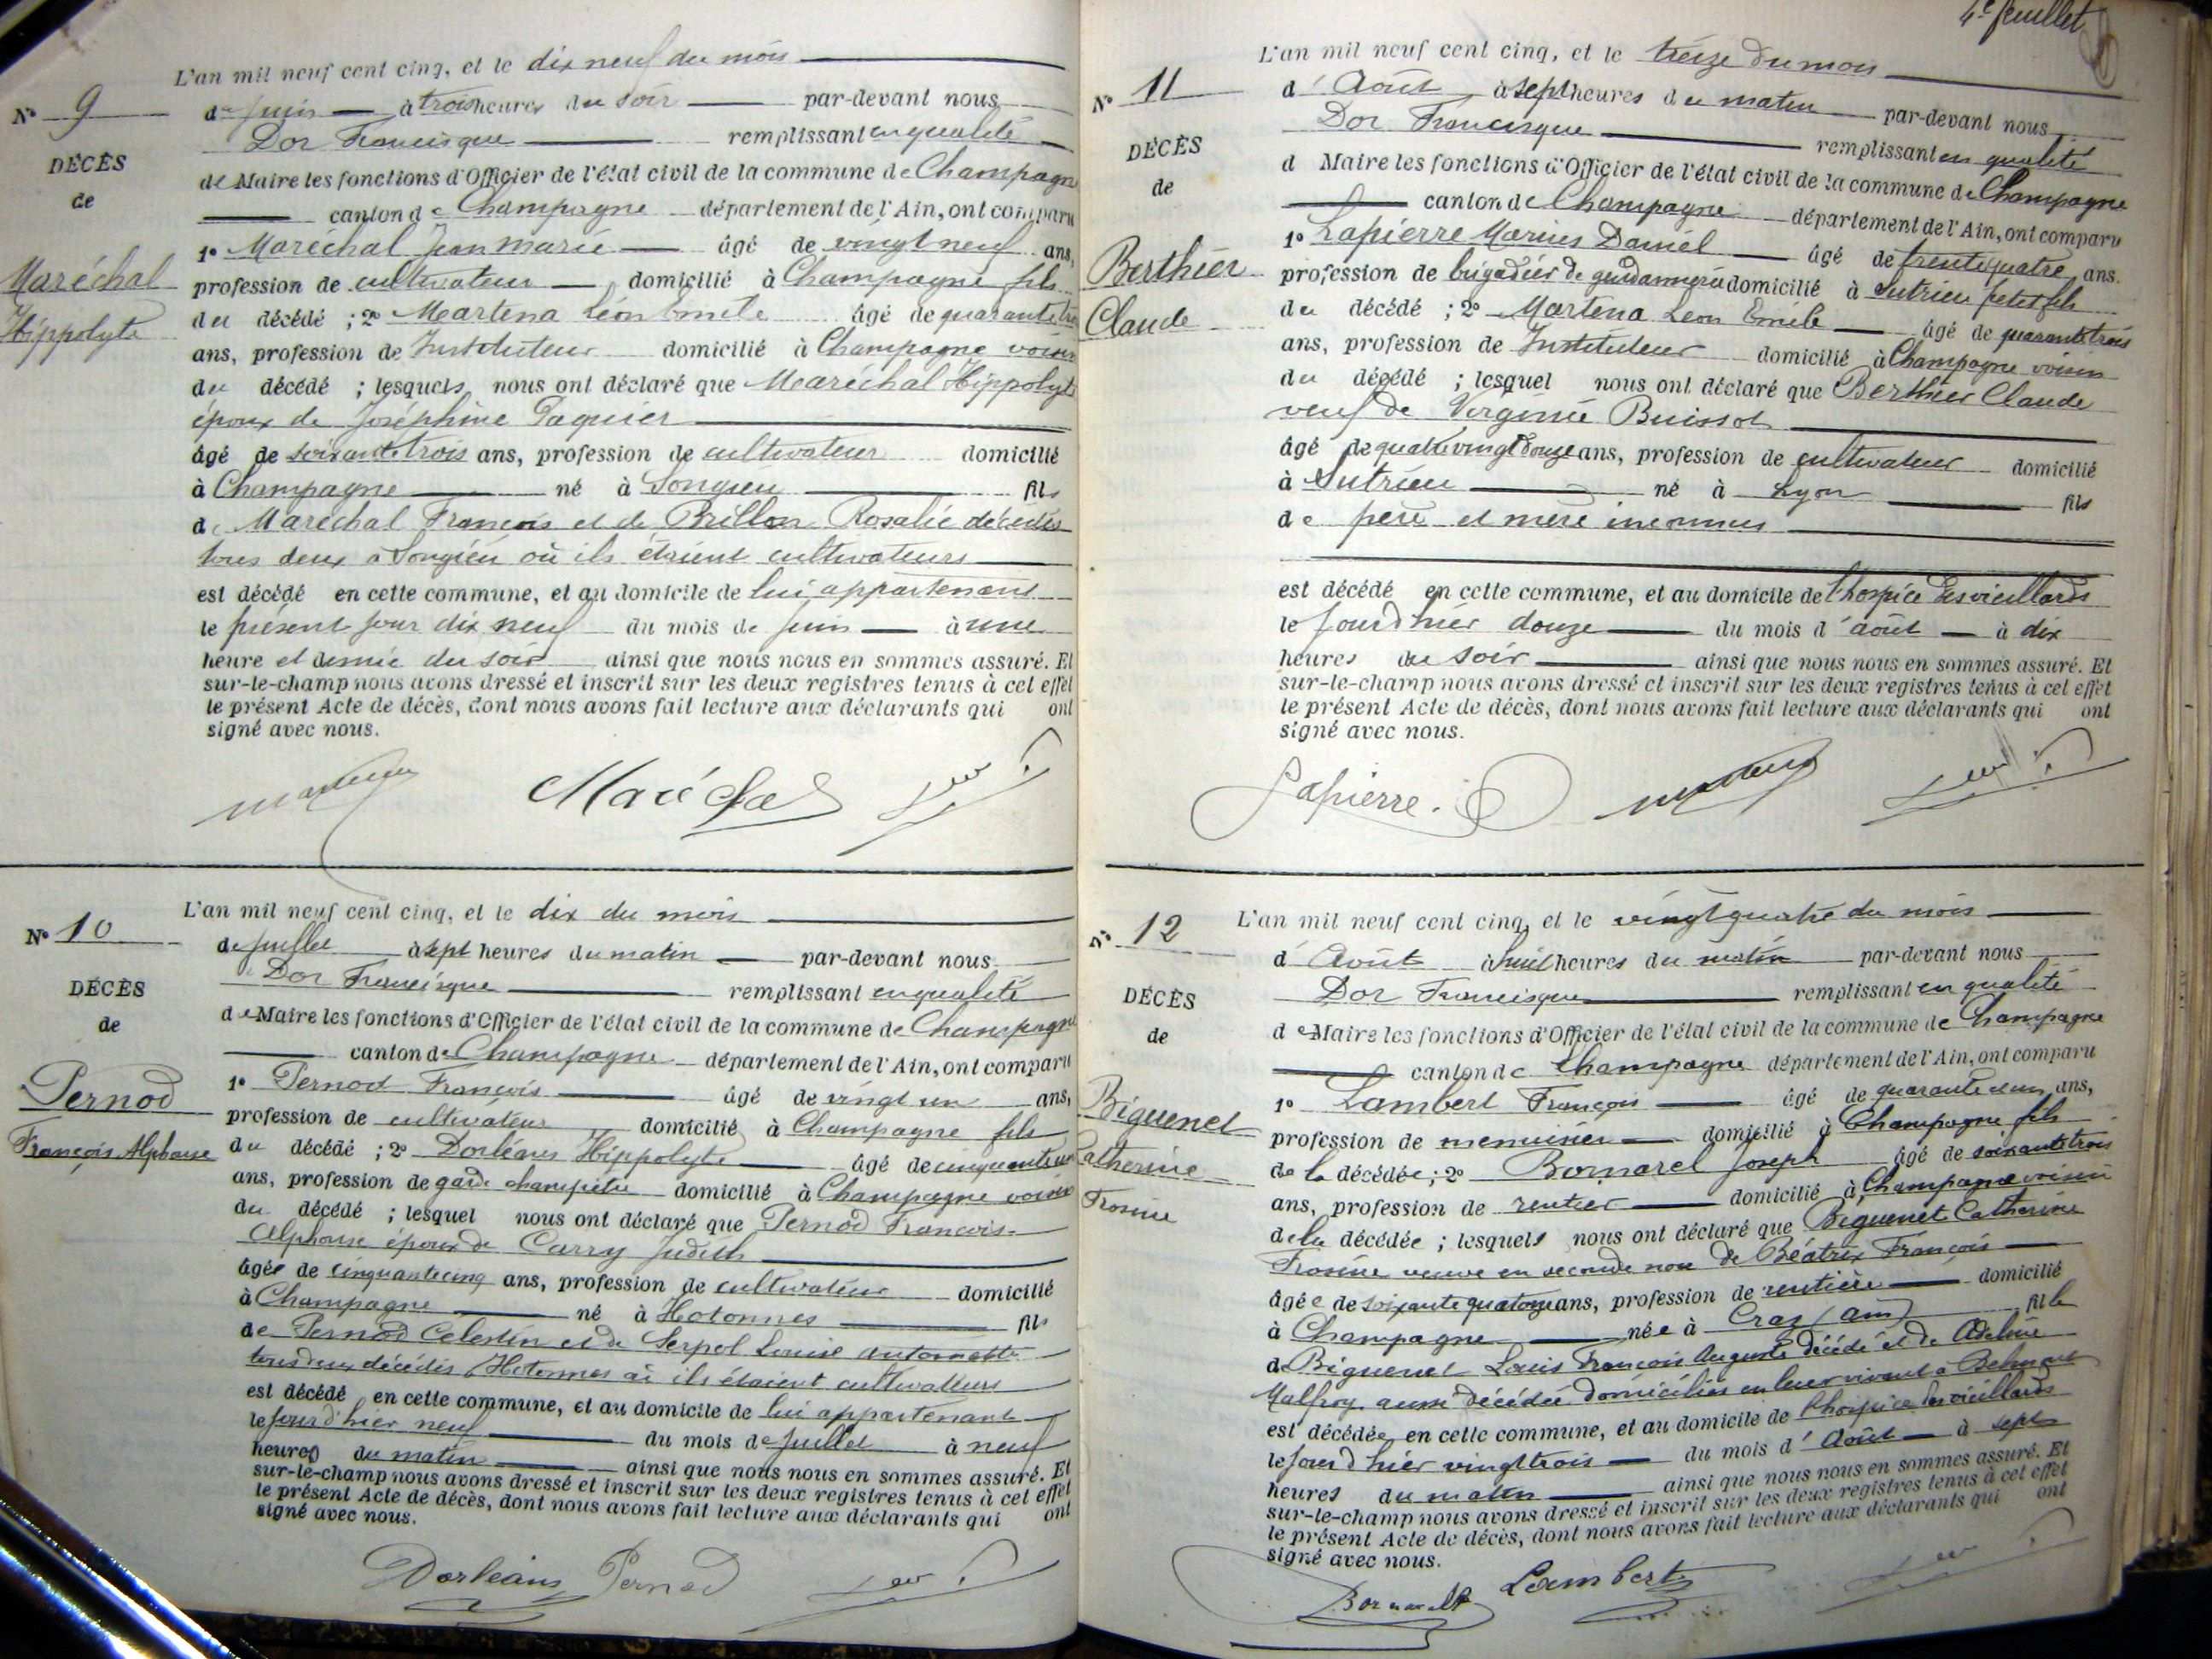 L'an mil neuf cent cinq, et le dix neuf du mois
N° 9
de juin à trois heures du soir par-devant nous
Dor Francisque remplissant en qualité
DÉCÈS
de
de Maire les fonctions d'Officier de l'état civil de la commune de Champagne
canton de Champagne département de l'Ain, ont comparu
1° Maréchal Jean Marie âgé de vingt neuf ans,
Maréchal
Hippolyte
profession de cultivateur domicilié à Champagne fils
du décédé ; 2° Martena Léon Emile âgé de quarante trois
ans, profession de Instituteur domicilié à Champagne voisin
du décédé ; lesquels nous ont déclaré que Maréchal Hippolyte
époux de Joséphine Paquier
âgé de soixante trois ans, profession de cultivateur domicilié
à Champagne né à Songieu fils
de Maréchal François et de Brillon Rosalie décédés
tous deux à Songieu où ils étaient cultivateurs
est décédé en cette commune, et au domicile de lui appartenant
le présent jour dix neuf du mois de juin à une
heure et demie du soir ainsi que nous nous en sommes assuré. Et
sur-le-champ nous avons dressé et inscrit sur les deux registres tenus à cet effet
le présent Acte de décès, dont nous avons fait lecture aux déclarants qui ont
signé avec nous.
Maréchal
L'an mil neuf cent cinq, et le dix du mois
N° 10
de juillet à sept heures du matin par-devant nous
Dor Francisque remplissant en qualité
DÉCÈS
de
de Maire les fonctions d'Officier de l'état civil de la commune de Champagne
canton de Champagne département de l'Ain, ont comparu
1° Pernod François âgé de vingt un ans,
Pernod
François Alphonse
profession de cultivateur domicilié à Champagne fils
du décédé ; 2° Dorléans Hippolyte âgé de cinquante un
ans, profession de garde champêtre domicilié à Champagne voisin
du décédé ; lesquel nous ont déclaré que Pernod François
Alphonse époux de Carry Judith
âgée de cinquante cinq ans, profession de cultivateur domicilié
à Champagne né à Hotonnes fils
de Pernod Celestin et de Serpol Louise Antoinette
tous deux décédés Hotonnes où ils étaient cultivateurs
est décédé en cette commune, et au domicile de lui appartenant
le jour d'hier neuf du mois de juillet à neuf
heures du matin ainsi que nous nous en sommes assuré. Et
sur-le-champ nous avons dressé et inscrit sur les deux registres tenus à cet effet
le présent Acte de décès, dont nous avons fait lecture aux déclarants qui ont
signé avec nous.
Dorléans Pernod
4e feuillet
L'an mil neuf cent cinq, et le treize du mois
N° 11
d'Août à sept heures du matin par-devant nous
Dor Francisque remplissant en qualité
DÉCÈS
de
d Maire les fonctions d'Officier de l'état civil de la commune de Champagne
canton de Champagne département de l'Ain, ont comparu
1° Lapierre Marius Daniel âgé de trente quatre ans.
Berthier
Claude
profession de brigadier de gendarmerie domicilié à Sutrieu petit fils
du décédé ; 2° Martena Léon Emile âgé de quarante trois
ans, profession de Instituteur domicilié à Champagne voisin
du décédé ; lesquel nous ont déclaré que Berthier Claude
veuf de Virginie Buissot
âgé de quatre vingt douze ans, profession de cultivateur domicilié
à Sutrieu né à Lyon fils
de père et mère inconnus
est décédé en cette commune, et au domicile de l'hospice des vieillards
le jour d'hier douze du mois d'août à dix
heures du soir ainsi que nous nous en sommes assuré. Et
sur-le-champ nous avons dressé et inscrit sur les deux registres tenus à cet effet
le présent Acte de décès, dont nous avons fait lecture aux déclarants qui ont
signé avec nous.
Lapierre.
L'an mil neuf cent cinq, et le vingt quatre du mois
N° 12
d'Août à huit heures du matin par-devant nous
Dor Francisque remplissant en qualité
DÉCÈS
de
de Maire les fonctions d'Officier de l'état civil de la commune de Champagne
canton de Champagne département de l'Ain, ont comparu
1° Lambert François âgé de quarante deux ans,
Biguenet
Catherine
Frosine
profession de menuisier domicilié à Champagne fils
de la décédée ; 2° Bornarel Joseph âgé de soixante trois
ans, profession de rentier domicilié à Champagne voisin
de la décédée ; lesquels nous ont déclaré que Biguenet Catherine
Frosine veuve en seconde noce de Béatrix François
âgée de soixante quatorze ans, profession de rentière domicilié
à Champagne née à Craz (Ain) fille
de Biguenet Louis François Auguste décédé et de Adeline
Malfroy aussi décédée domiciliés en leur vivant à Belmont
est décédée en cette commune, et au domicile de l'hospice des vieillards
le jour d'hier vingt trois du mois d'Août à sept
heures du matin ainsi que nous nous en sommes assuré. Et
sur-le-champ nous avons dressé et inscrit sur les deux registres tenus à cet effet
le présent Acte de décès, dont nous avons fait lecture aux déclarants qui ont
signé avec nous.
Lambert